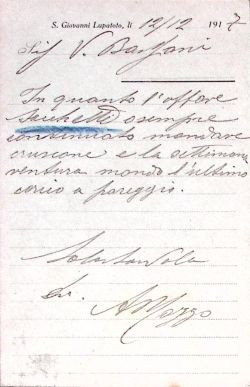 S. Giovanni Lupatoto, li 12/12 1917
Sig V. Bassani
In quanto l'affare
Sacchetti o sempre
continuato mandare
cruscone e la settimana
ventura mando l'ultimo
carico a pareggio.
Salutandola
A Mazzo